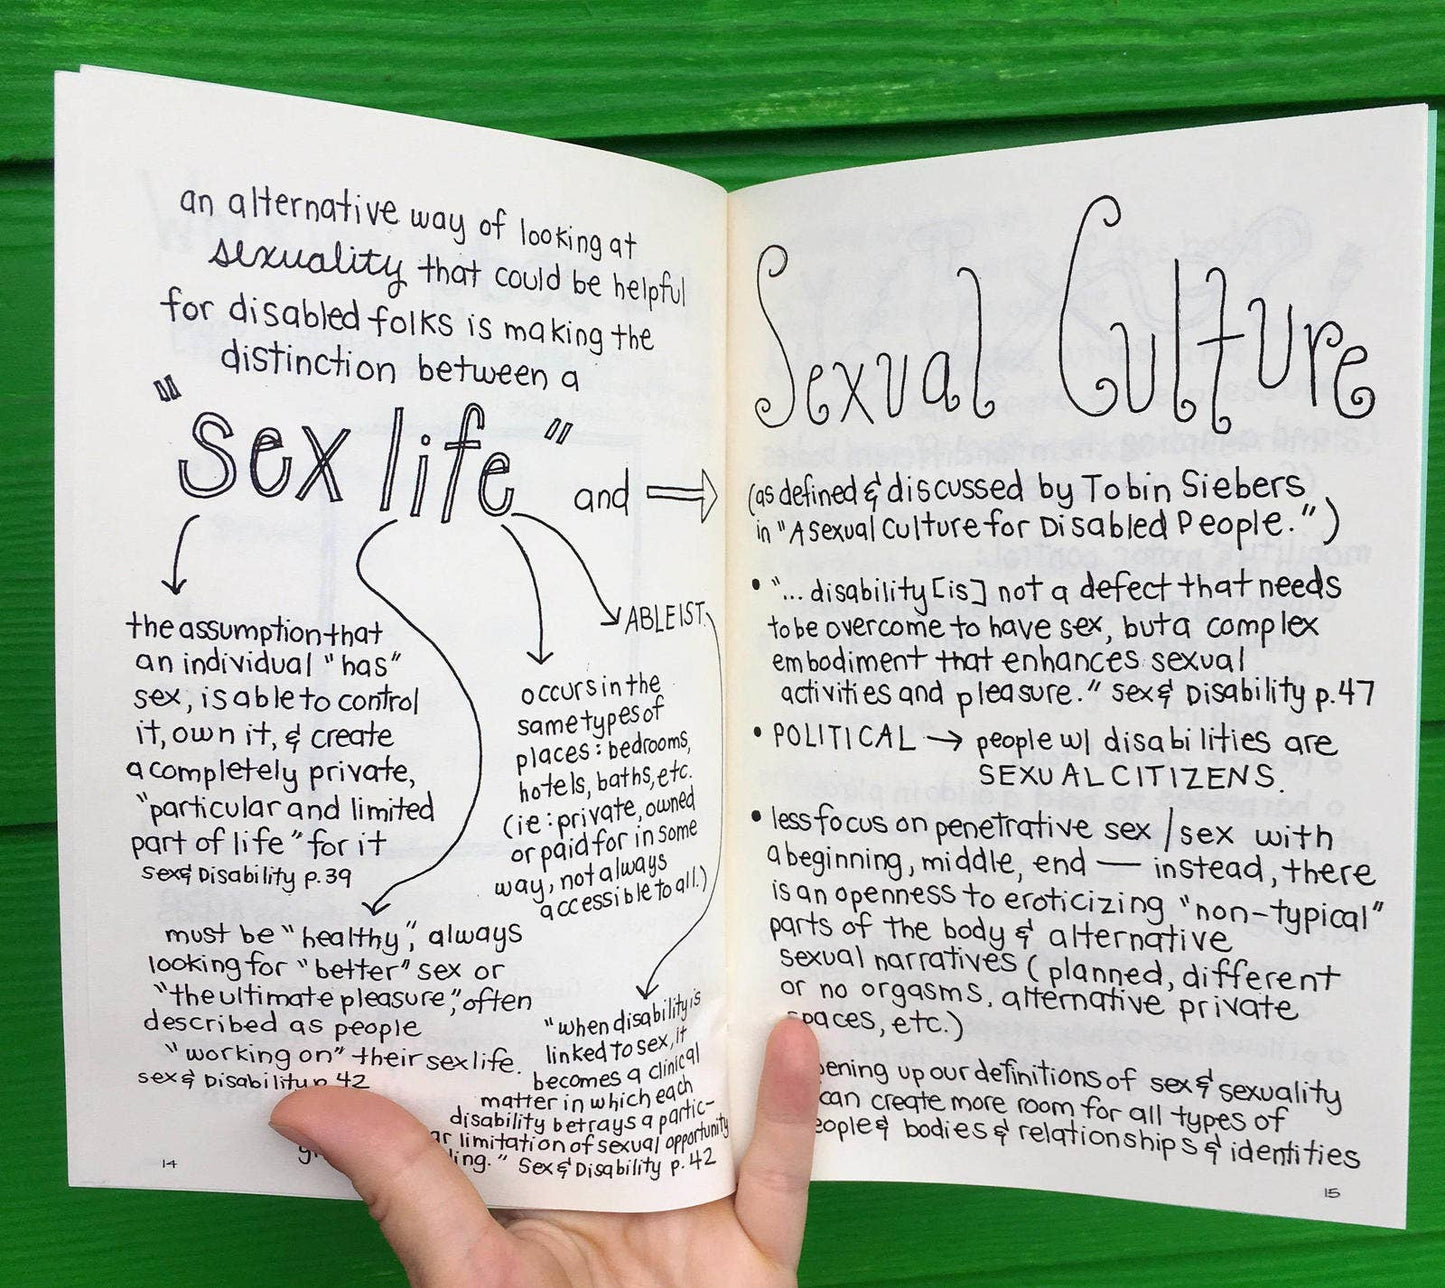 an alternative way of looking at
sexuality that could be helpful
for disabled folks is making the
distinction between a
"sex life" and
the assumption that
an individual "has"
sex, is able to control
it, own it, & create
a completely private,
"particular and limited
part of life" for it
sex & Disability p.39
must be "healthy", always
looking for "better" sex or
"the ultimate pleasure", often
described as people
"working on" their sex life.
sex & Disability p.42
occurs in the
same types of
places: bedrooms,
hotels, baths, etc.
(ie: private, owned
or paid for in some
way, not always
accessible to all.)
ABLEIST.
"when disability is
linked to sex, it
becomes a clinical
matter in which each
disability betrays a partic-
ar limitation of sexual opportunity
ling." Sex & Disability p.42
14
Sexual Culture
(as defined & discussed by Tobin Siebers
in "A Sexual Culture for Disabled People.")
• "... disability [is] not a defect that needs
to be overcome to have sex, but a complex
embodiment that enhances sexual
activities and pleasure." sex & Disability p.47
• POLITICAL → people w/ disabilities are
SEXUAL CITIZENS.
• less focus on penetrative sex / sex with
a beginning, middle, end — instead, there
is an openness to eroticizing "non-typical"
parts of the body & alternative
sexual narratives (planned, different
or no orgasms, alternative private
spaces, etc.)
ening up our definitions of sex & sexuality
can create more room for all types of
eople & bodies & relationships & identities
15